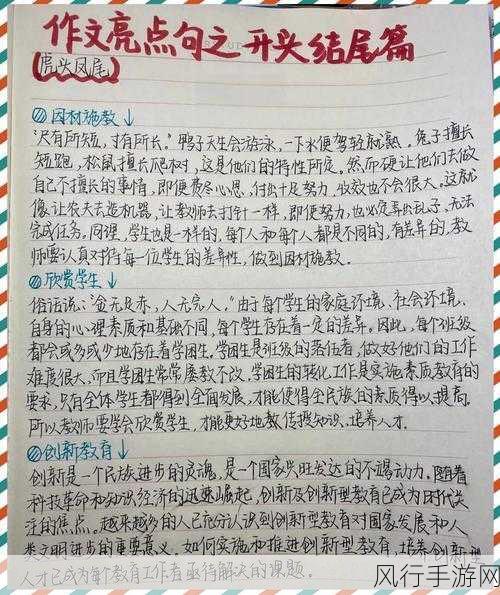 作文亮点句之开头结尾篇
(虎头凤尾)
① 因材施教↓
"尺有所短，寸有所长。"鸭子天生会游泳，一下水便驾轻就熟。兔子擅长
短跑，松鼠擅长爬树，这是他们的特性所定。然而硬让他们去做
自己不擅长的事情，即便费尽心思，付出十足努力，收效也不会很大。这就
像让农夫去造机器，让教师去打针一样，即便努力，也必定弄出乱子，无法
完成任务。同理，学生也是一样的，每个人和每个人都是不同的，有差异的，教
师要认真对待每一位学生的差异性，做到因材施教。
② 欣赏学生↓
俗话说："金无足赤，人无完人。"由于每个学生的家庭环境、社会环境、
自身的心理素质和基础不同，每个学生存在着一定的差异。因此，每个班级
都会或多或少地存在着学困生，学困生是班级的落伍者，做好他们的工作
难度很大，而且学困生常常屡教不改，学困生的转化工作是实施素质教育的
要求，只有全体学生都得到全面发展，才能使得全民族的素质得以提高。
所以教师要学会欣赏学生，才能更好地教传授知识、培养人才。
③ 创新教育↓
创新是一个民族进步的灵魂，是一个国家兴旺发达的不竭动力。随着
科技革命和知识经济的迅速崛起，创新及创新型教育已成为时代关
注的焦点。越来越多的人已充分认识到创新型教育对国家发展和人
类文明进步的重要意义。如何实施和推进创新型教育，培养创新型
人才已成为每个教育工作者亟待解决的课题。
风行手游网